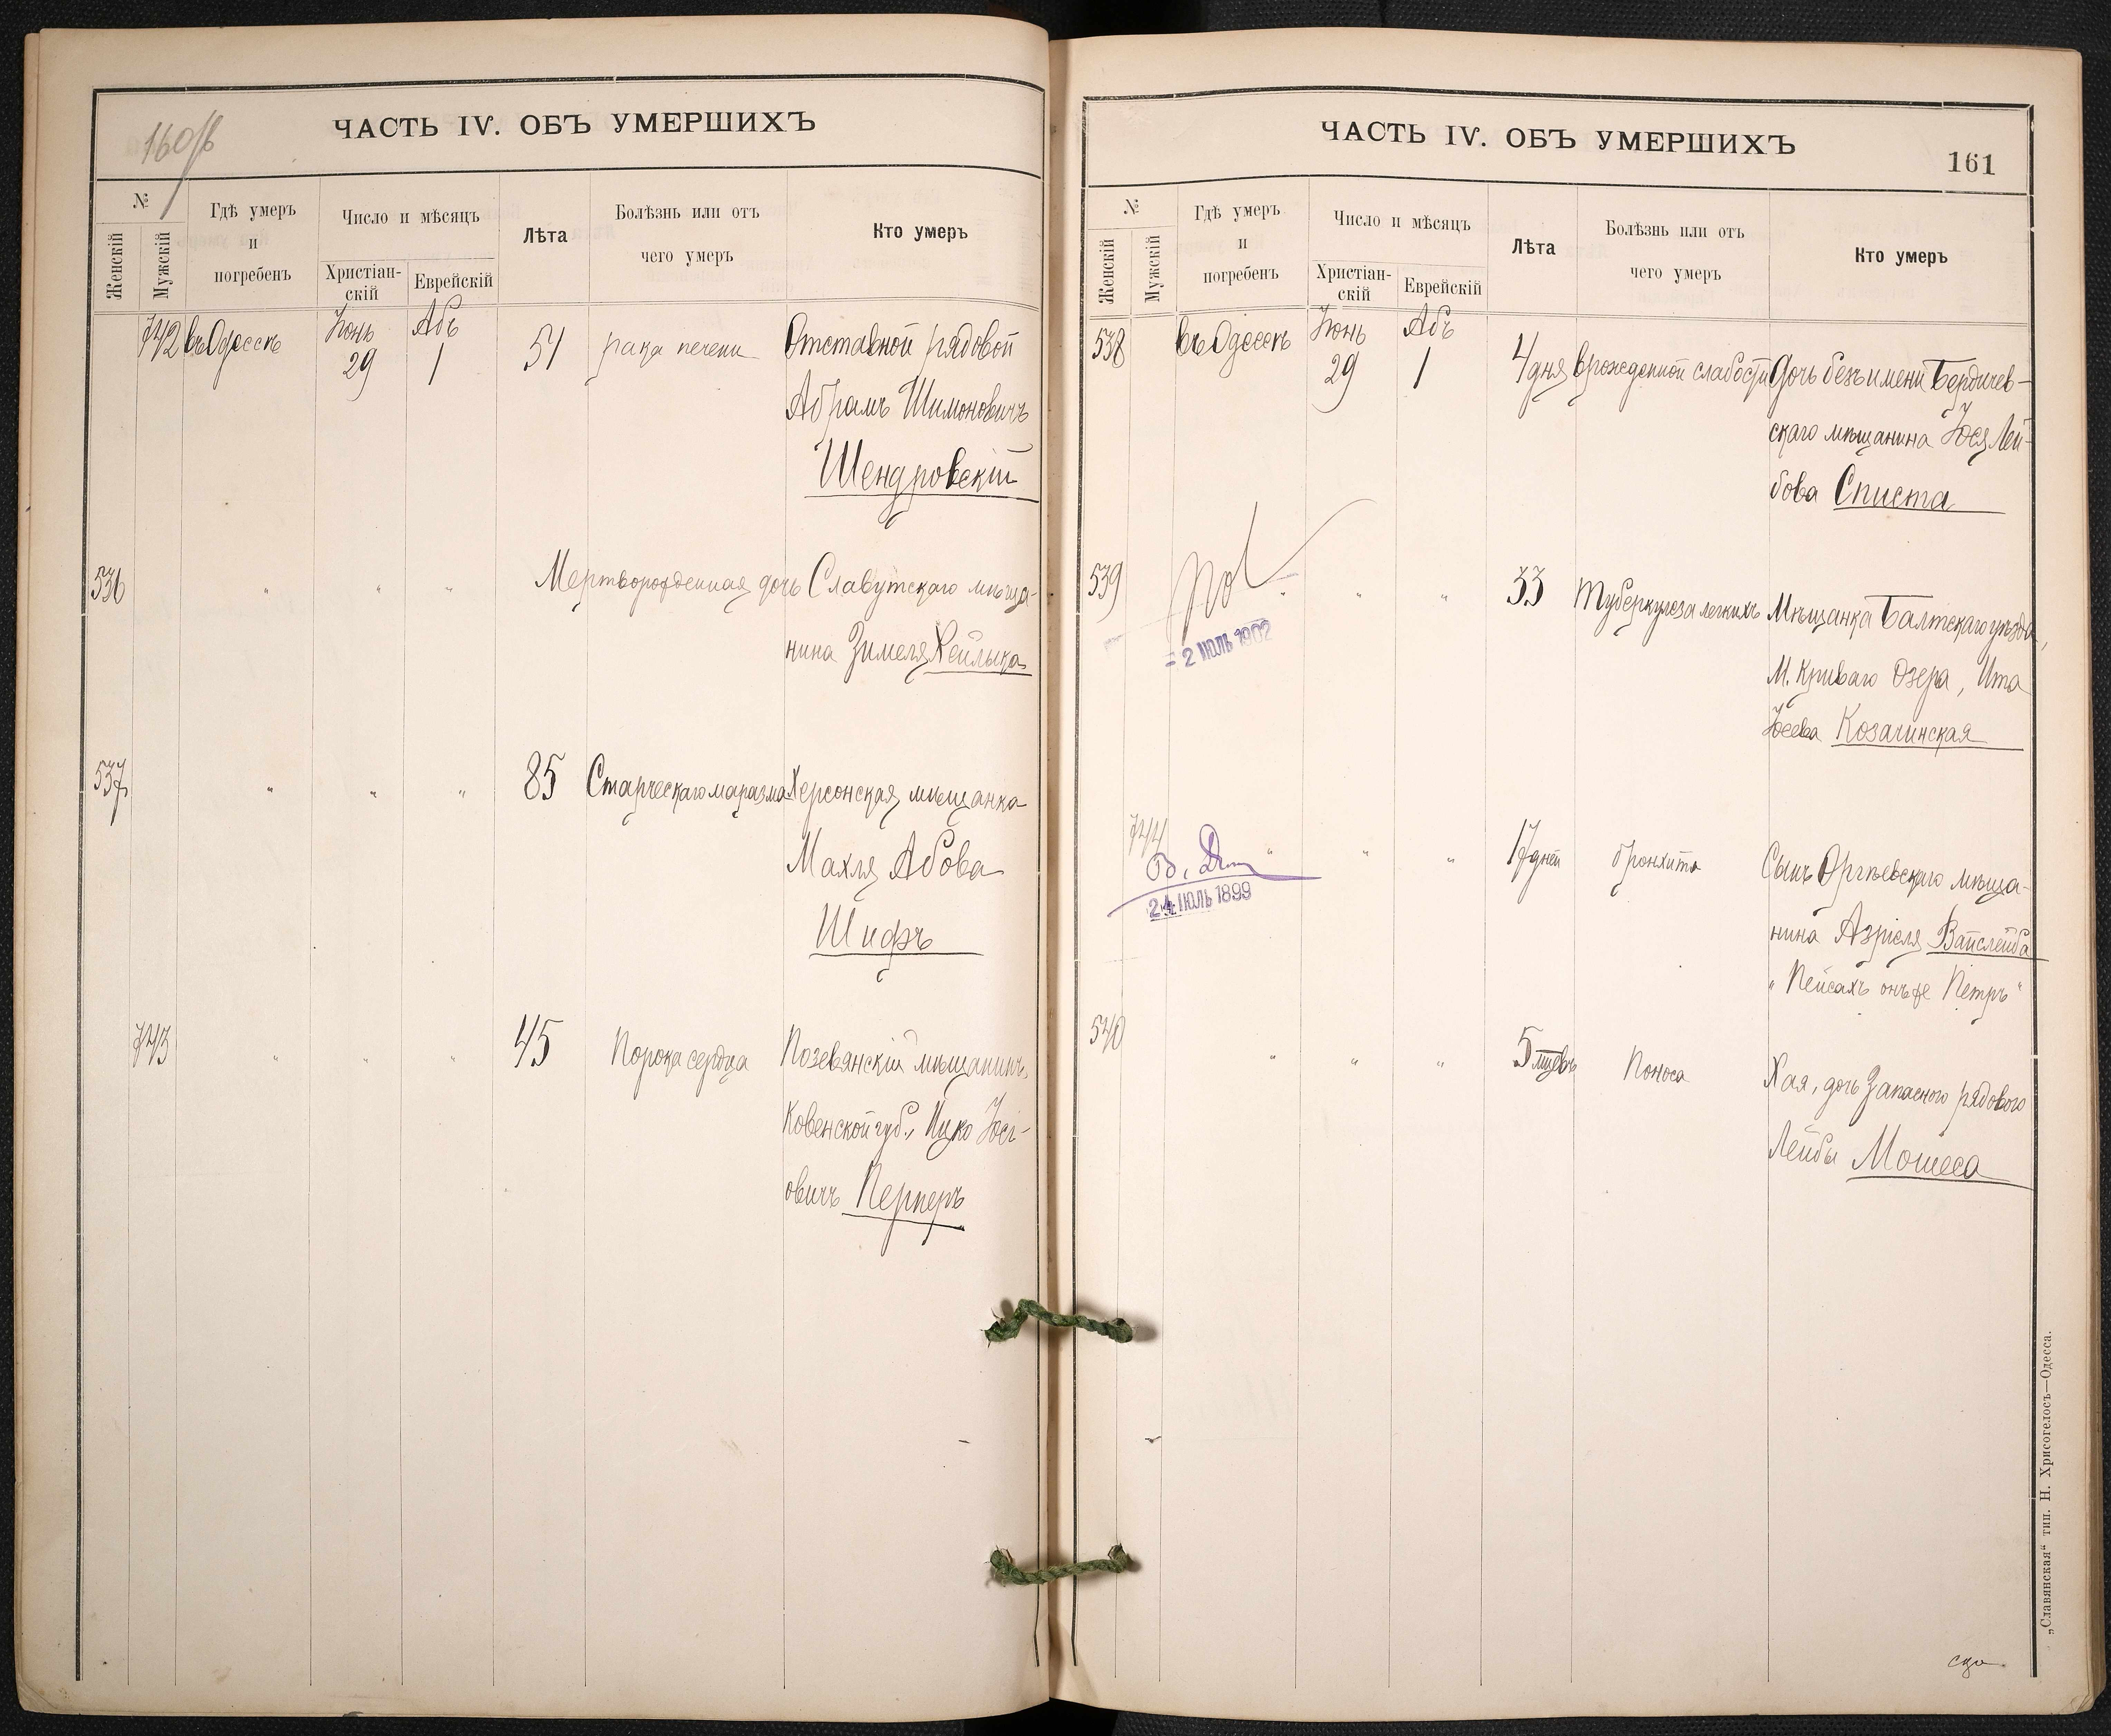 160/б
ЧАСТЬ IV. ОБЪ УМЕРШИХЪ
№
Женскій
Мужскій
Гдѣ умеръ
и
погребенъ
Число и мѣсяцъ
Христіан-
скій
Еврейскій
Лѣта
Болѣзнь или отъ
чего умеръ
Кто умеръ
742 въ Одессѣ Іюнь 29 Абъ 1 51 рака печени Отставной рядовой
Абрамъ Шимоновичъ
Шендровскій
536 " " " Мертворожденная дочь Славутскаго мѣща-
нина Зимеля Хейлыка
537 " " " 85 Старческаго маразма Херсонская мѣщанка
Махля Абова
Шифъ
743 " " " 45 Порока сердца Позевянскій мѣщанинъ,
Ковенской губ., Ицко Іосі-
овичъ Перперъ
ЧАСТЬ IV. ОБЪ УМЕРШИХЪ
161
№
Женскій
Мужскій
Гдѣ умеръ
и
погребенъ
Число и мѣсяцъ
Христіан-
скій
Еврейскій
Лѣта
Болѣзнь или отъ
чего умеръ
Кто умеръ
538 въ Одессѣ Іюнь 29 Абъ 1 4 дня врожденной слабости Дочь безъ имени Бердичев-
скаго мѣщанина Іося Лей-
бова Списта
539 " " " 33 Туберкулеза легкихъ Мѣщанка Балтскаго уѣзда,
М. Криваго Озера, Ита
Іосева Козачинская
2 ІЮЛЬ 1902
744 " " " 17 дней бронхита Сынъ Оргѣевскаго мѣща-
нина Азріеля Вайслейба
"Пейсахъ онъ же Петръ"
24 ІЮЛЬ 1899
540 " " " 5 мѣсцевъ Поноса Хая, дочь Запасного рядового
Лейбы Мошеса
„Славянская“ тип. Н. Хрисогелосъ—Одесса.